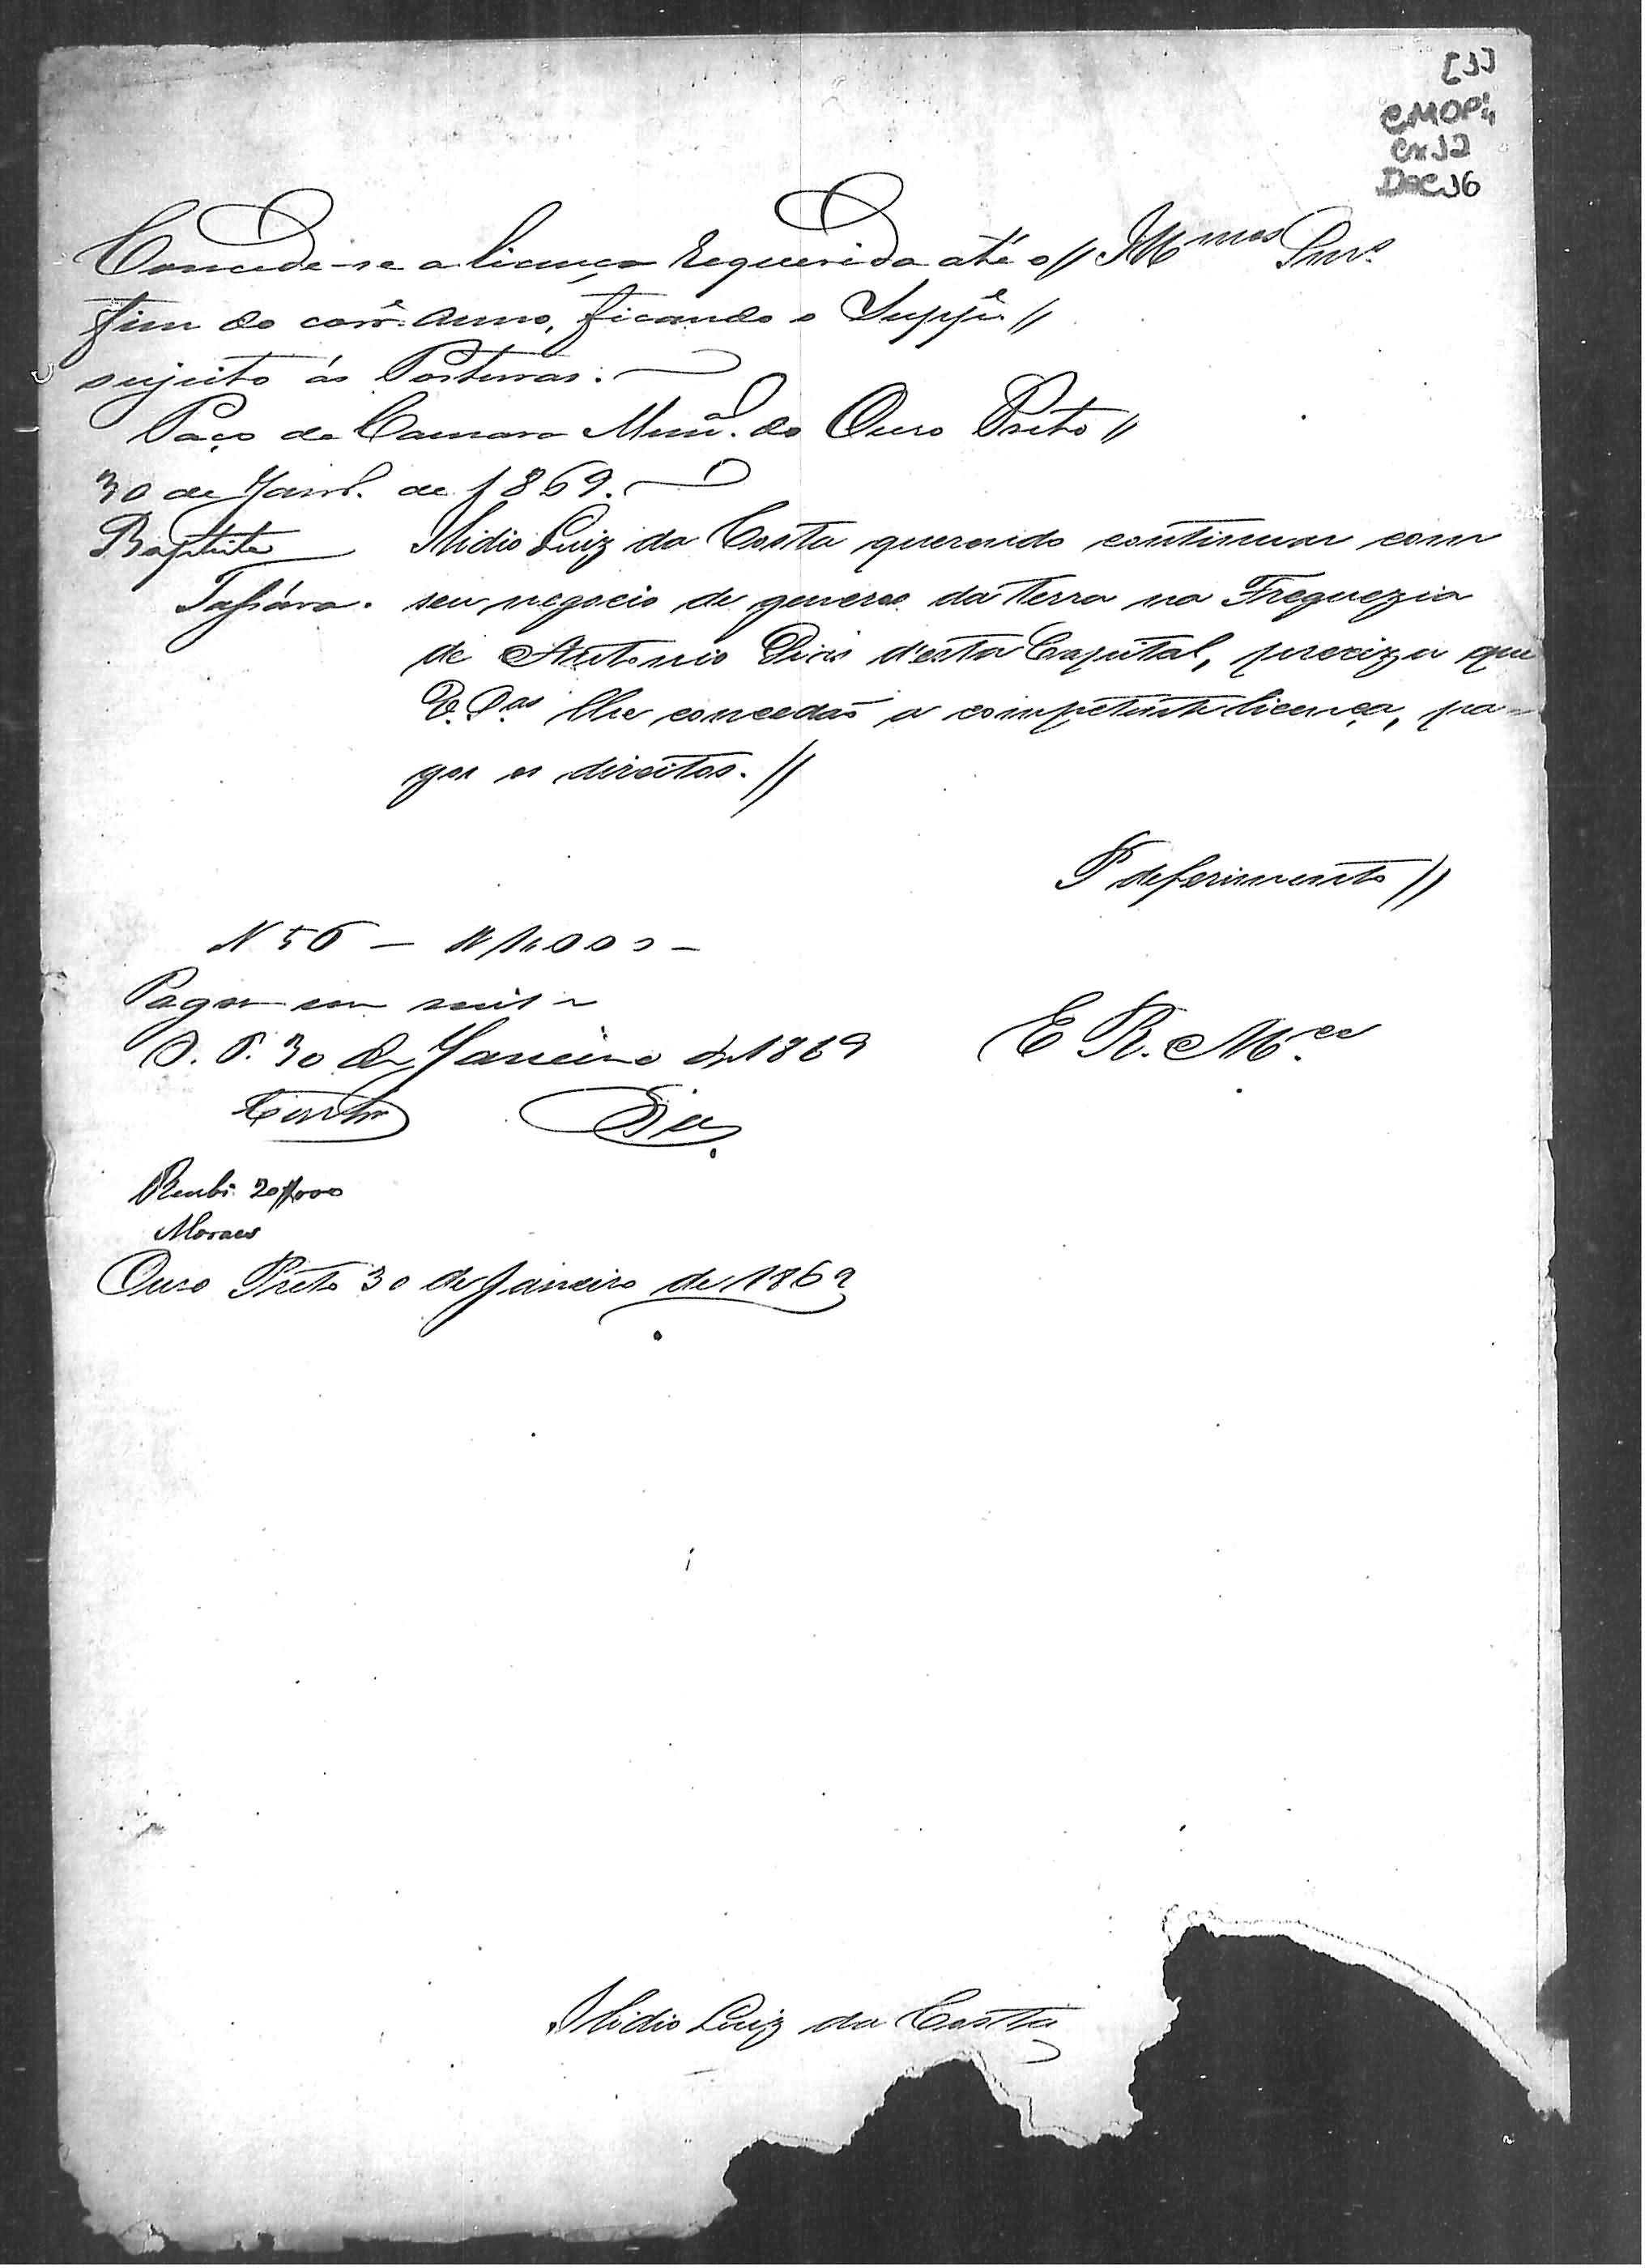 [3]
CMOP
Cx 12
Doc 16
Concede-se a licença requerida até o // Illmos Snrs.
fim do corre. anno, ficando o Suppe. //
sujeito ás Posturas.
Paço da Camara Munal. do Ouro Preto //
30 de Janro. de 1869.
Baptista
Ilidio Luiz da Costa querendo continuar com
seu negocio de generos da terra na Freguezia
de Antonio Dias d'esta Capital, preciza que
V. Sas lhe concedaõ a competente licença, pa-
gos os direitos. //
P deferimento //
N 56 — 1$000 —
Pagou um mil
O. P. 30 de Janeiro de 1869
E R. Mce
Costa Dias
Recebi 20$000
Moraes
Ouro Preto 30 de Janeiro de 1869
Ilidio Luiz da Costa